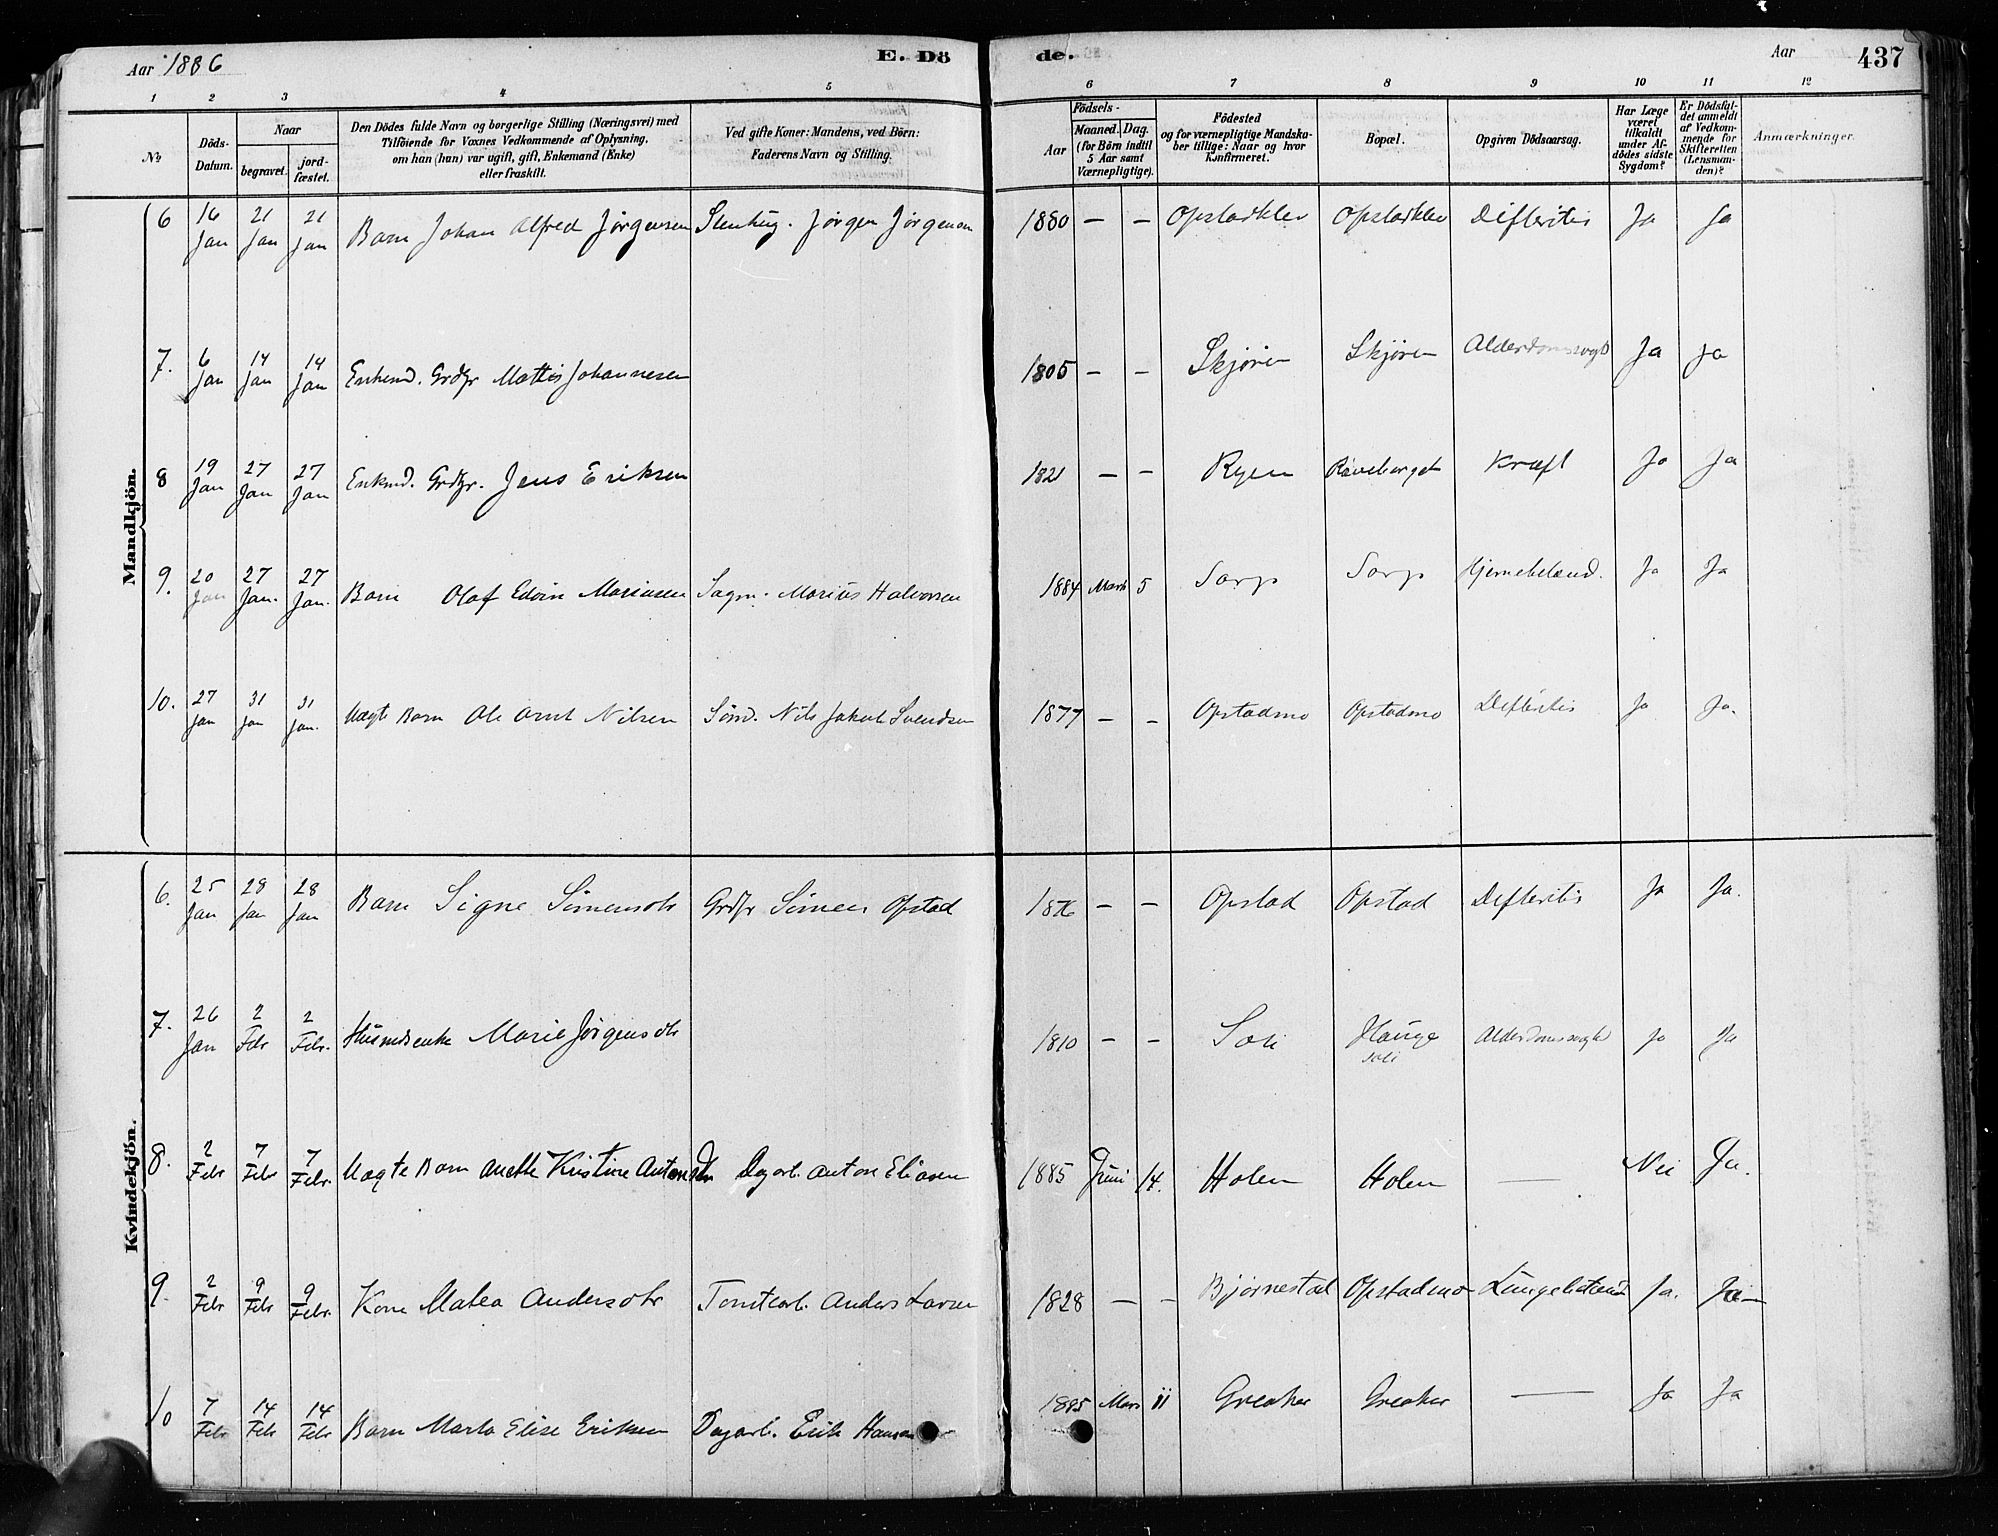 Aar 1886 E. Dö de. Aar 437
1 2 3 4 5 6 7 8 9 10 11 12
No
Döds-Datum.
Naar
begravet.
jord-fæstet.
Den Dödes fulde Navn og borgerlige Stilling (Næringsvei) med
Tilföiende for Voxnes Vedkommende af Oplysning,
om han (hun) var ugift, gift, Enkemand (Enke)
eller fraskilt.
Ved gifte Koner: Mandens, ved Börn:
Faderens Navn og Stilling.
Födsels-
Aar
Maaned. Dag.
(for Börn indtil
5 Aar samt
Værnepligtige).
Födested
og for værnepligtige Mandska-
ber tillige: Naar og hvor
Konfirmeret.
Bopæl.
Opgiven Dödsaarsag.
Har Læge
været
tilkaldt
under Af-
dödes sidste
Sygdom?
Er Dödsfal-
det anmeldt
af Vedkom-
mende for
Skifteretten
(Lensman-
den)?
Anmærkninger.
Mandkjön.
6 16 Jan 21 Jan 21 Jan Barn Johan Alfred Jørgensen Stenhug. Jørgen Jørgensen 1880 — — Opstadklev Opstadklev Difteritis Ja Ja
7. 6 Jan 14 Jan 14 Jan Enkemd. Grdbr Mattis Johannesen 1805 — — Skjøren Skjøren Alderdomssvagh Ja Ja
8 19 Jan 27 Jan 27 Jan Enkmd. Grdbr. Jens Eriksen 1821 — — Ryen Räveberget Kræft Ja Ja
9. 20 Jan 27 Jan. 27 Jan. Barn Olaf Edvin Mariusen Sagm. Marius Halvorsen 1884 Marts 5 Sarp Sarp Hjernebetænd. Ja Ja
10. 27 Jan 31 Jan 31 Jan. Uægte Barn Ole Arnt Nilsen Sömd. Nils Jakob Svendsen 1877 — — Opstadmo Opstadmo Difteritis Ja Ja.
Kvindekjön.
6. 25 Jan 28 Jan 28 Jan Barn Signe Simensdtr Grdbr Simen Opstad 1876 — — Opstad Opstad Difteritis Ja Ja.
7. 26 Jan 2 Febr 2 Febr. Husmdsenke Marie Jørgensdtr 1810 — — Soli Hauge Soli Alderdomssvagh Ja Ja
8. 2 Febr 7 Febr 7 Febr. Uægte Barn Anette Kristine Antonsdtr Dagarb. Anton Eliasen 1885 Juni 14. Holen Holen — Nei Ja.
9. 2 Febr 9 Febr 9 Febr. Kone Matea Andersdtr Tomtearb. Anders Larsen 1828 — — Bjørnestad Opstadmo Lungebetænd Ja. Ja —
10 7 Febr 14 Febr 14 Febr. Barn Marta Elise Eriksen Dagarb. Erik Hansen 1885 Mars 11 Greaker Greaker — Ja Ja